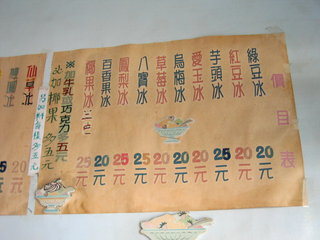 價目表
綠豆冰 20元
紅豆冰 20元
芋頭冰 25元
愛玉冰 20元
烏梅冰 20元
草莓冰 20元
八寶冰 25元
鳳梨冰 25元
百香果冰 20元
椰果冰 25元
※加牛乳或巧克力多五元
加椰果 多五元
仙草冰
元